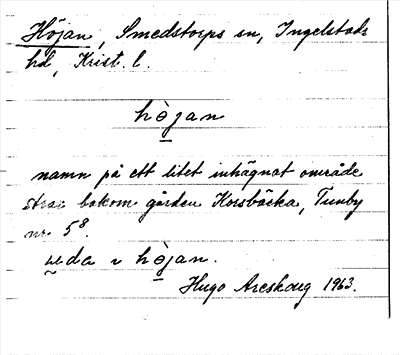 Höjan, Smedstorps sn, Ingelstads
hd, Krist. l.
hòjan
namn på ett litet inhägnat område
strax bakom gården Korsbäcka, Tunby
nr 5⁸.
u hòjan.
Hugo Areskoug 1963.